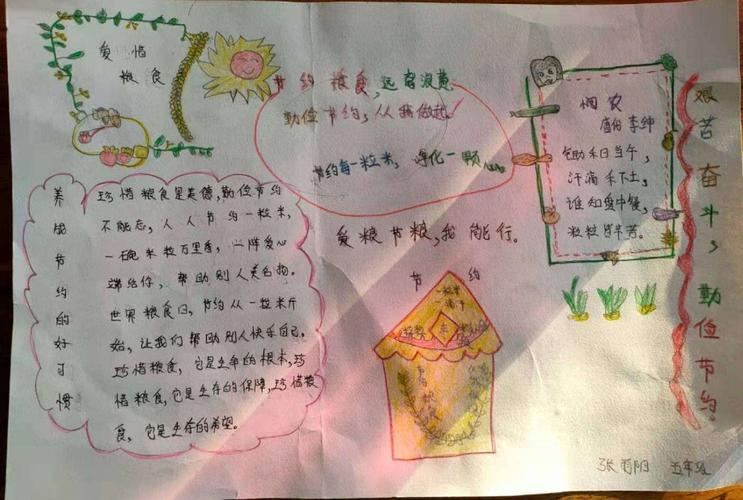 爱惜
粮食
节约粮食,远离浪费
勤俭节约,从我做起。
节约每一粒米,净化一颗心。
爱粮节粮,我能行。
悯农
唐份 李绅
锄禾日当午,
汗滴禾下土,
谁知盘中餐,
粒粒皆辛苦。
艰苦奋斗,勤俭节约。
养成节约的好习惯
珍惜粮食是美德,勤俭节约
不能忘,人人节约一粒米,
一碗米粒万里香,一阵爱心
端给你,帮助别人美名扬。
世界粮食日,节约从一粒米开
始,让我们帮助别人快乐自己。
珍惜粮食,它是生命的根本,珍
惜粮食,它是生存的保障,珍惜粮
食,它是生存的希望。
节约
一粒米
一滴汗
张雨阳 五年级